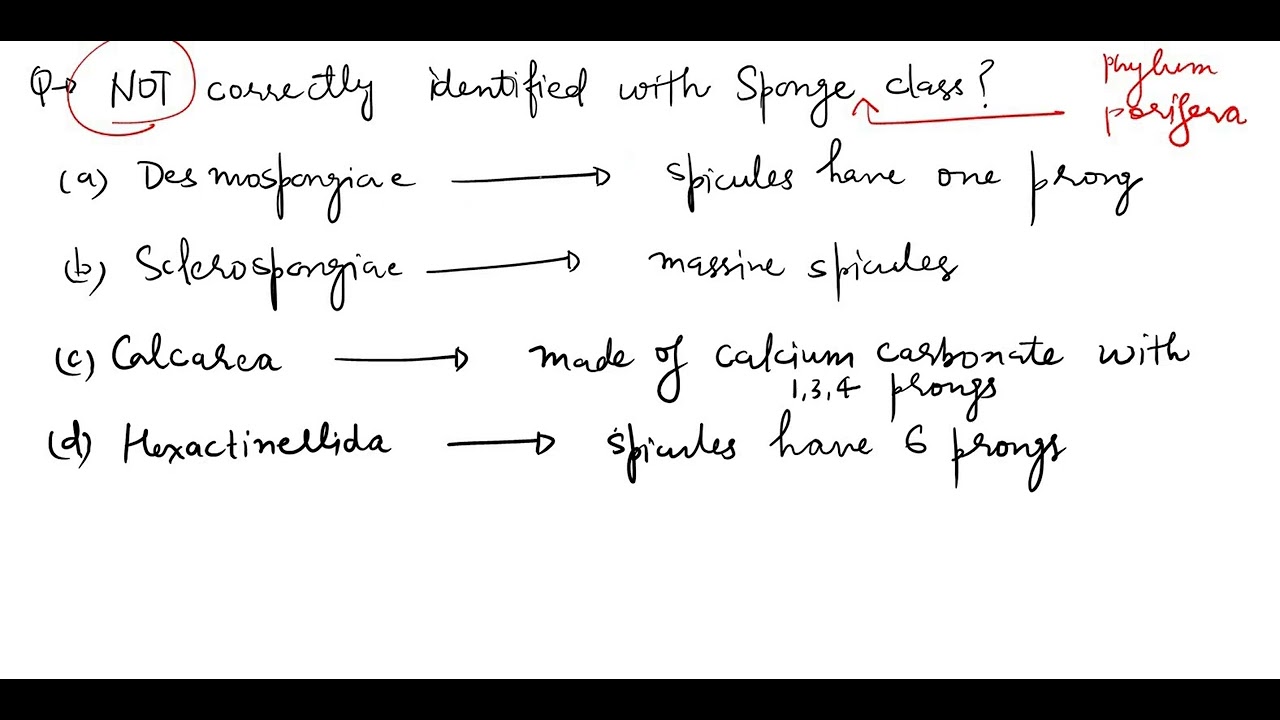 Q→ NOT correctly identified with Sponge class?
phylum
porifera
(a) Desmospongiae → spicules have one prong
(b) Sclerospongiae → massive spicules
(c) Calcarea → made of calcium carbonate with
1,3,4 prongs
(d) Hexactinellida → spicules have 6 prongs